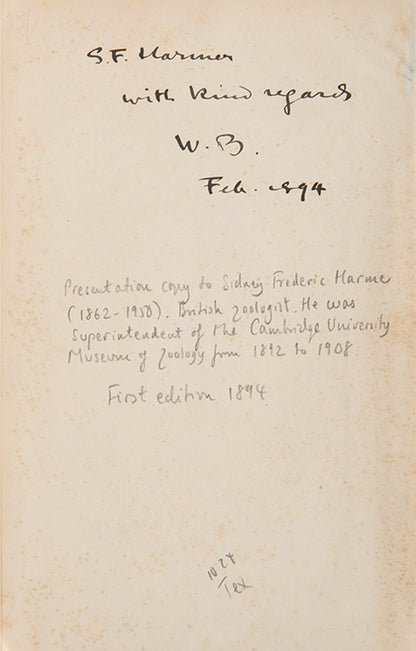 S.F. Harmer
with kind regards
W.B.
Feb. 1894
Presentation copy to Sidney Frederic Harmer
(1862-1950). British zoologist. He was
Superintendent of the Cambridge University
Museum of Zoology from 1892 to 1908.
First edition 1894
Tex